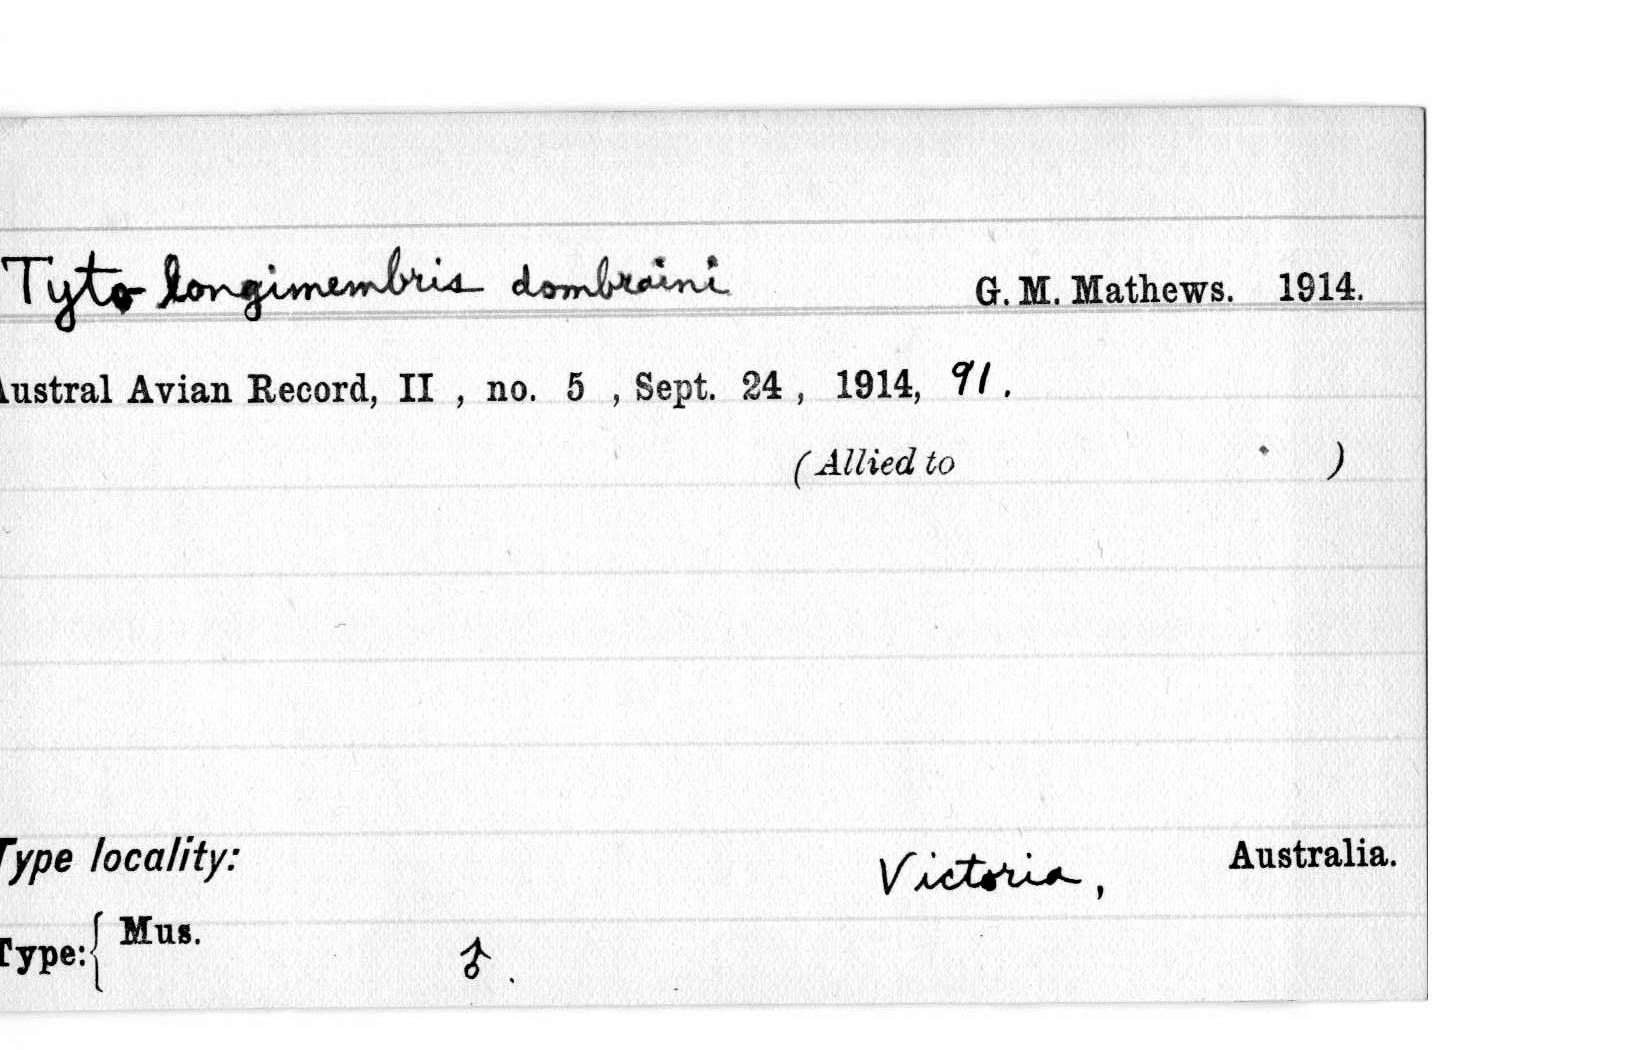 Tyto longimembris dombraini G. M. Mathews. 1914.
Austral Avian Record, II , no. 5 , Sept. 24 , 1914, 91 .
(Allied to )
Type locality: Victoria, Australia.
Type: { Mus. ♂ .